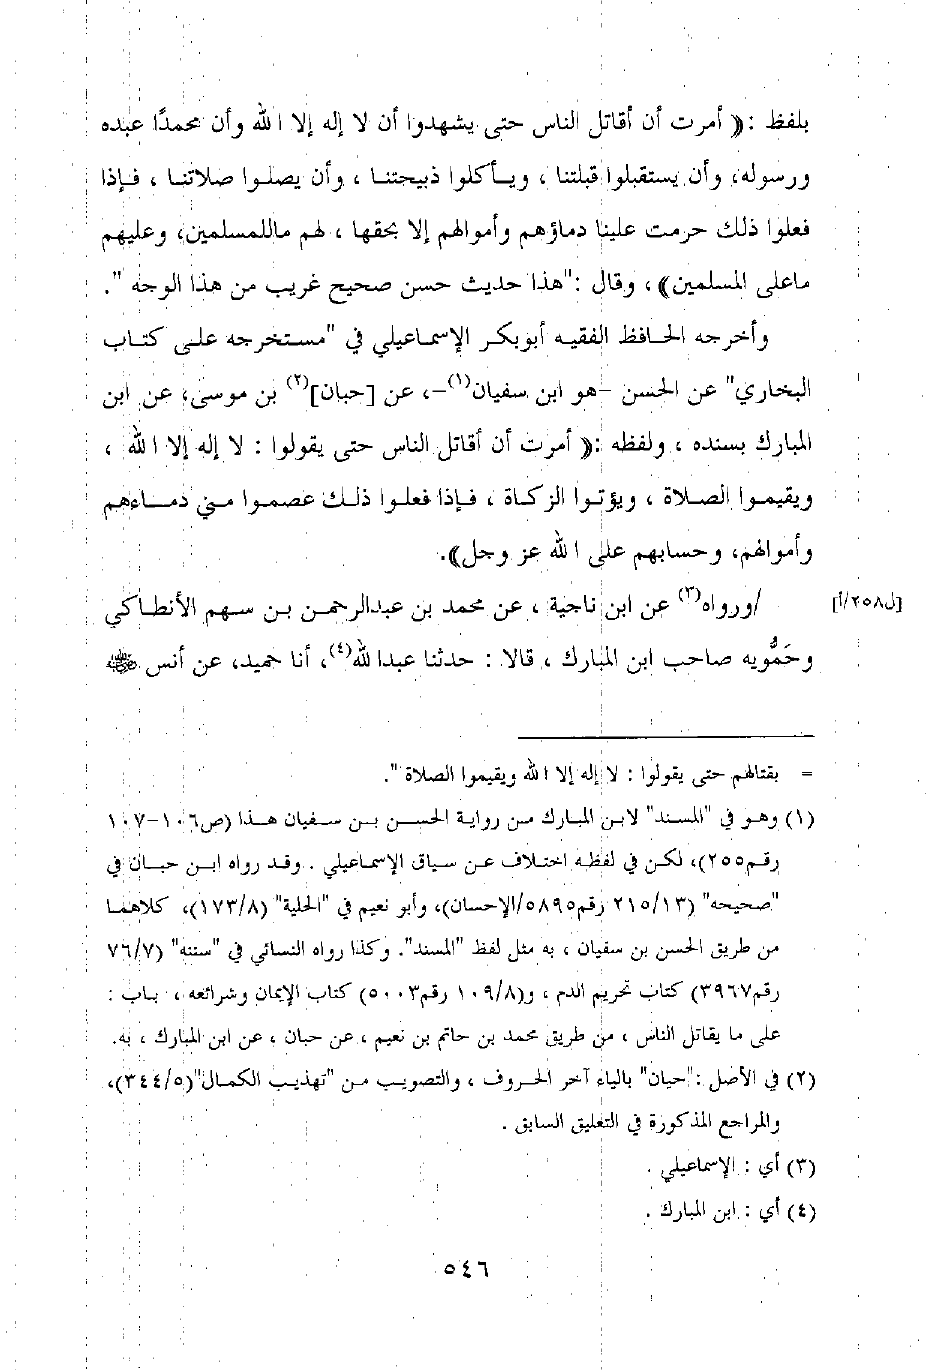 بلفظ :﴿ أمرت أن أقاتل الناس حتى يشهدوا أن لا إله إلا الله وأن محمدًا عبده
ورسوله، وأن يستقبلوا قبلتنا ، ويأكلوا ذبيحتنا ، وأن يصلوا صلاتنا ، فإذا
فعلوا ذلك حرمت علينا دماؤهم وأموالهم إلا بحقها ، لهم ماللمسلمين، وعليهم
ماعلى المسلمين﴾ ، وقال :"هذا حديث حسن صحيح غريب من هذا الوجه ".
وأخرجه الحافظ الفقيه أبوبكر الإسماعيلي في "مستخرجه على كتاب
البخاري" عن الحسن –هو ابن سفيان(١)–، عن [حبان](٢) بن موسى، عن ابن
المبارك بسنده ، ولفظه :﴿ أمرت أن أقاتل الناس حتى يقولوا : لا إله إلا الله ،
ويقيموا الصلاة ، ويؤتوا الزكاة ، فإذا فعلوا ذلك عصموا مني دماءهم
وأموالهم، وحسابهم على الله عز وجل﴾.
[ل٢٥٨/أ] /ورواه(٣) عن ابن ناجية ، عن محمد بن عبدالرحمن بن سهم الأنطاكي
وحَمُّويه صاحب ابن المبارك ، قالا : حدثنا عبدالله(٤)، أنا حميد، عن أنس ﷺ
= بقتالهم حتى يقولوا : لا إله إلا الله ويقيموا الصلاة ".
(١) وهو في "المسند" لابن المبارك من رواية الحسن بن سفيان هذا (ص١٠٦-١٠٧
رقم٢٥٥)، لكن في لفظه اختلاف عن سياق الإسماعيلي . وقد رواه ابن حبان في
"صحيحه" (٢١٥/١٣ رقم٥٨٩٥/الإحسان)، وأبو نعيم في "الحلية" (١٧٣/٨)، كلاهما
من طريق الحسن بن سفيان ، به مثل لفظ "المسند". وكذا رواه النسائي في "سننه" (٧٦/٧
رقم٣٩٦٧) كتاب تحريم الدم ، و(١٠٩/٨ رقم٥٠٠٣) كتاب الإيمان وشرائعه ، باب :
على ما يقاتل الناس ، من طريق محمد بن حاتم بن نعيم ، عن حبان ، عن ابن المبارك ، به.
(٢) في الأصل :"حيان" بالياء آخر الحروف ، والتصويب من "تهذيب الكمال"(٣٤٤/٥)،
والمراجع المذكورة في التعليق السابق .
(٣) أي : الإسماعيلي .
(٤) أي : ابن المبارك .
٥٤٦